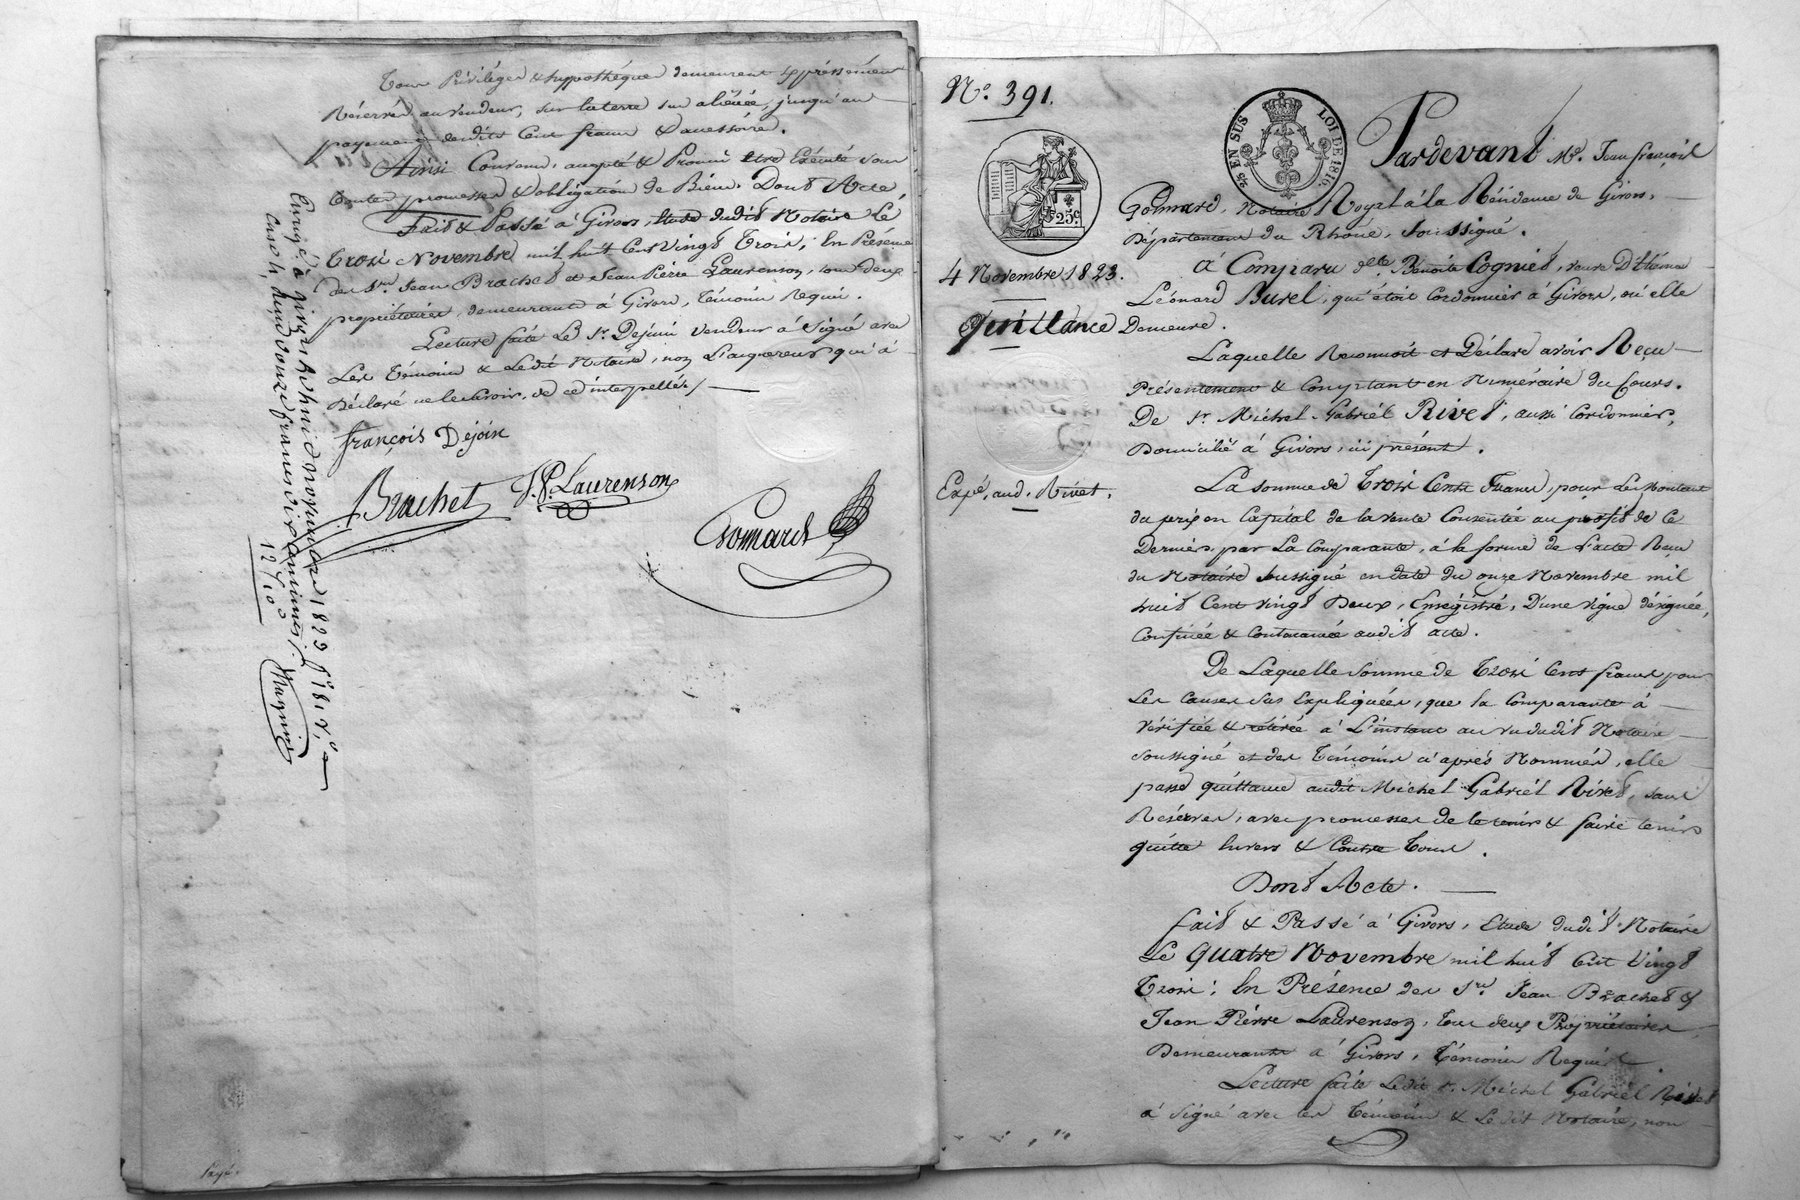 Tous Privilèges & hyppothéques demeurent Expréssément
Réservés au vendeur, sur la terre sus aliénée, jusqu'au
payement desdits Cent francs & accessoires.
Ainsi Convenu, accepté & Promis être Exécuté sous
toutes promesses & obligation de Biens. Dont Acte,
Fait & Passé à Givors, Etude dudit Notaire Lé
trois Novembre mil huit Cent Vingt trois; En Présence
des Srs. Jean Brachet et Jean Pierre Laurenson, tous deux
propriétaires, demeurant à Givors, témoins Requis.
Lecture faite Le Sr. Dejoin Vendeur à Signé avec
Les témoins & Ledit Notaire, non L'acquereur qui à
Déclaré ne le savoir, de ce interpellés /
françois Dejoin
Brachet
J. P. Laurenson
Gonnard
Enregé à Givors le huit novembre 1823 fo. 181 Vo.
Case 4, reçu douze francs dix centimes.
12f 10c
Magnin
Payé.
No. 391.
25 EN SUS
LOI DE 1816.
25c.
4 Novembre 1823.
Quittance
Expé, aud. Rivet.
Pardevant Me. Jean françois
Gonnard, Notaire Royal à la Résidence de Givors,
Département du Rhône, soussigné.
A Comparu dlle. Benoite Cogniet, veuve D'Etienne
Léonard Burel, qui étoit Cordonnier à Givors, où elle
Demeure.
Laquelle Reconnoit et Déclare avoir Reçu
Présentement & Comptant en Numéraire du Cours.
De Sr. Michel Gabriél Rivet, aussi Cordonnier,
Domicilié à Givors, ici présent.
La somme de trois Cents Francs, pour Le Montant
du prix en Capital de la vente Consentie au profit de Ce
Dernier par La Comparante, à la forme de l'acte Reçu
du Notaire soussigné en date du onze Novembre mil
huit Cent vingt Deux, Enregistré, D'une vigne désignée,
Confinée & Contenancée audit acte.
De Laquelle somme de trois Cents francs pour
Les Causes sus Expliquées, que la Comparante à
vérifiée & retirée à L'instant au vu dudit Notaire
soussigné et des témoins ci après Nommés, elle
passe quittance audit Michel Gabriél Rivet, sans
Réserves, avec promesses de le tenir & faire tenir
quitte Envers & Contre tous.
Dont Acte.
fait & Passé à Givors, Etude dudit Notaire
Le Quatre Novembre mil huit Cent Vingt
trois; En Présence des Srs. Jean Brachet &
Jean Pierre Laurenson, tous deux Propriétaires
Demeurants à Givors, témoins Requis.
Lecture faite Ledit Sr. Michel Gabriel Rivet
à Signé avec les témoins & Ledit Notaire, non